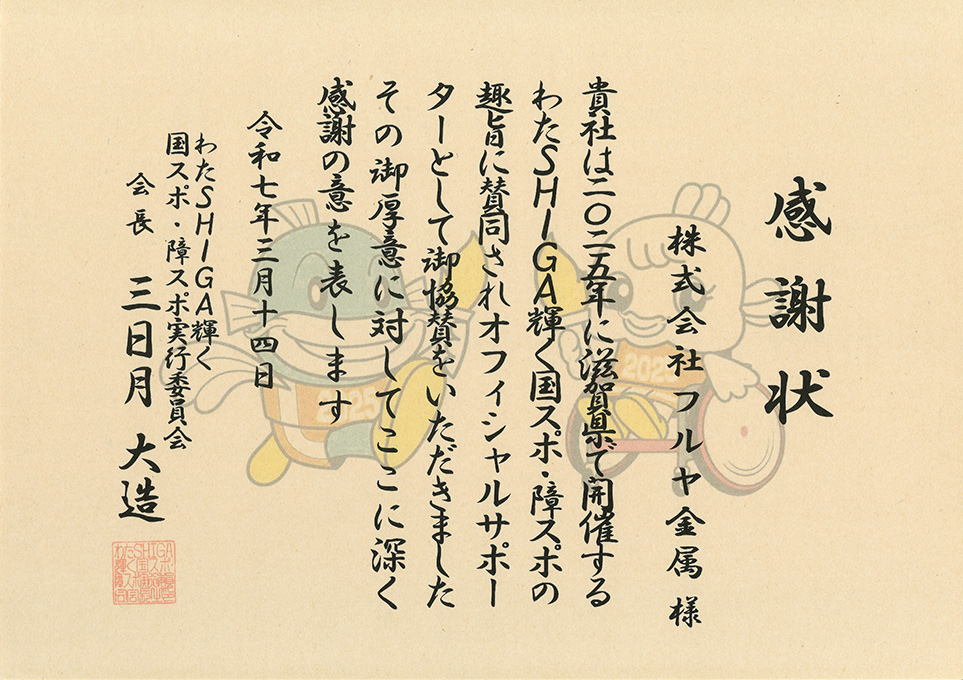 感謝状
株式会社フルヤ金属 様
貴社は二〇二五年に滋賀県で開催する
わたSHIGA輝く国スポ・障スポの
趣旨に賛同されオフィシャルサポー
ターとして御協賛をいただきました
その御厚意に対してここに深く
感謝の意を表します
令和七年三月十四日
わたSHIGA輝く
国スポ・障スポ実行委員会
会長 三日月 大造
2025
2025